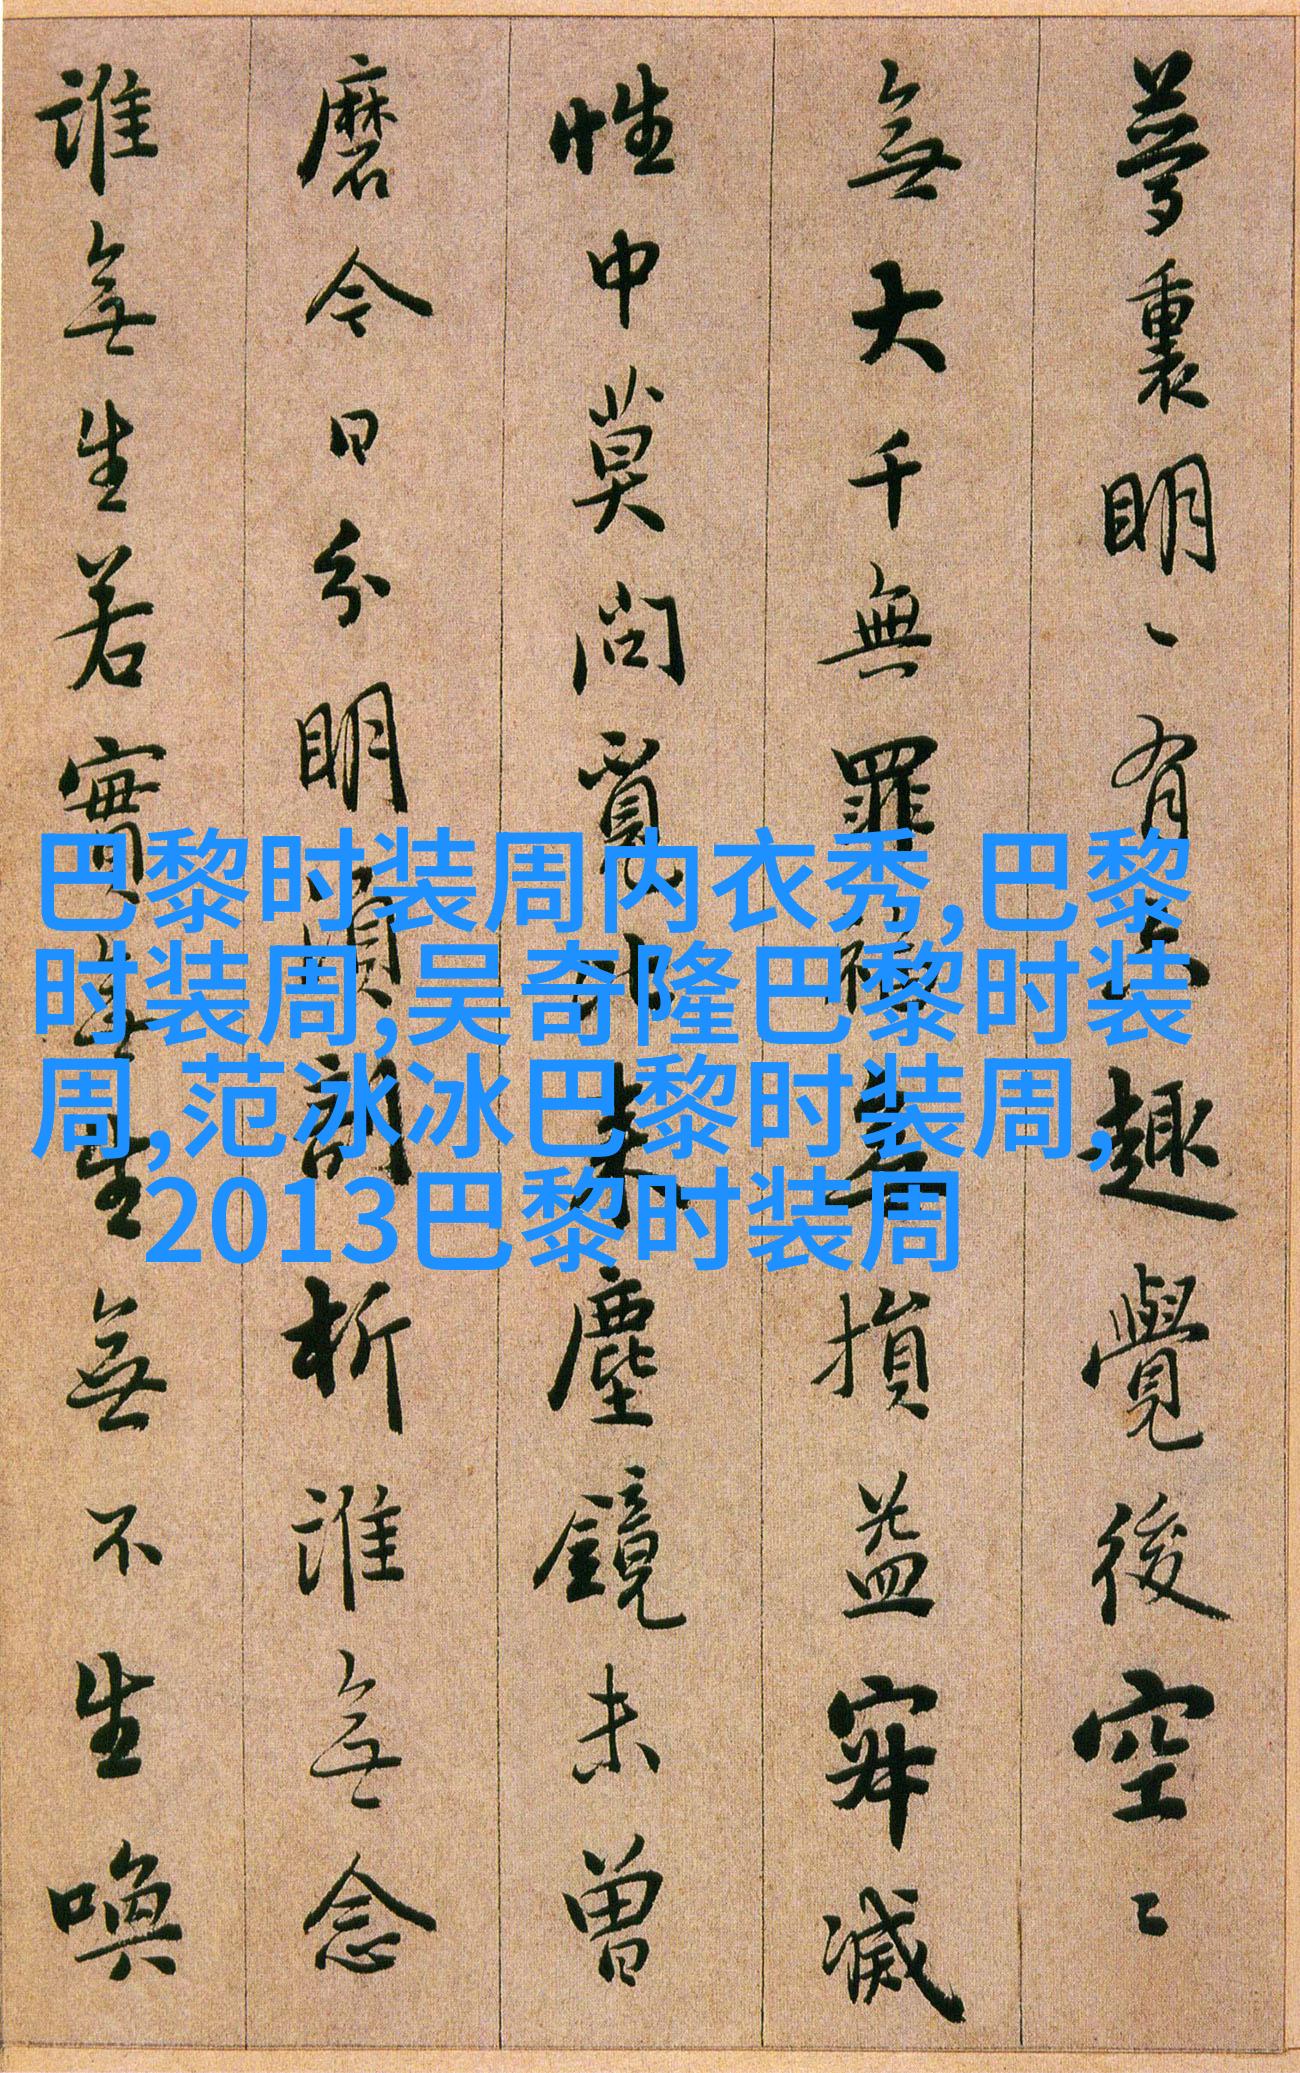 夢裏明〻有六趣覺後空〻
無大千無罪福損益寂滅
性中莫問覓比来塵鏡未曾
磨今日分明須剖析誰無念
誰無生若實無生無不生喚
巴黎时装周内衣秀,巴黎
时装周,吴奇隆巴黎时装
周,范冰冰巴黎时装周,
2013巴黎时装周